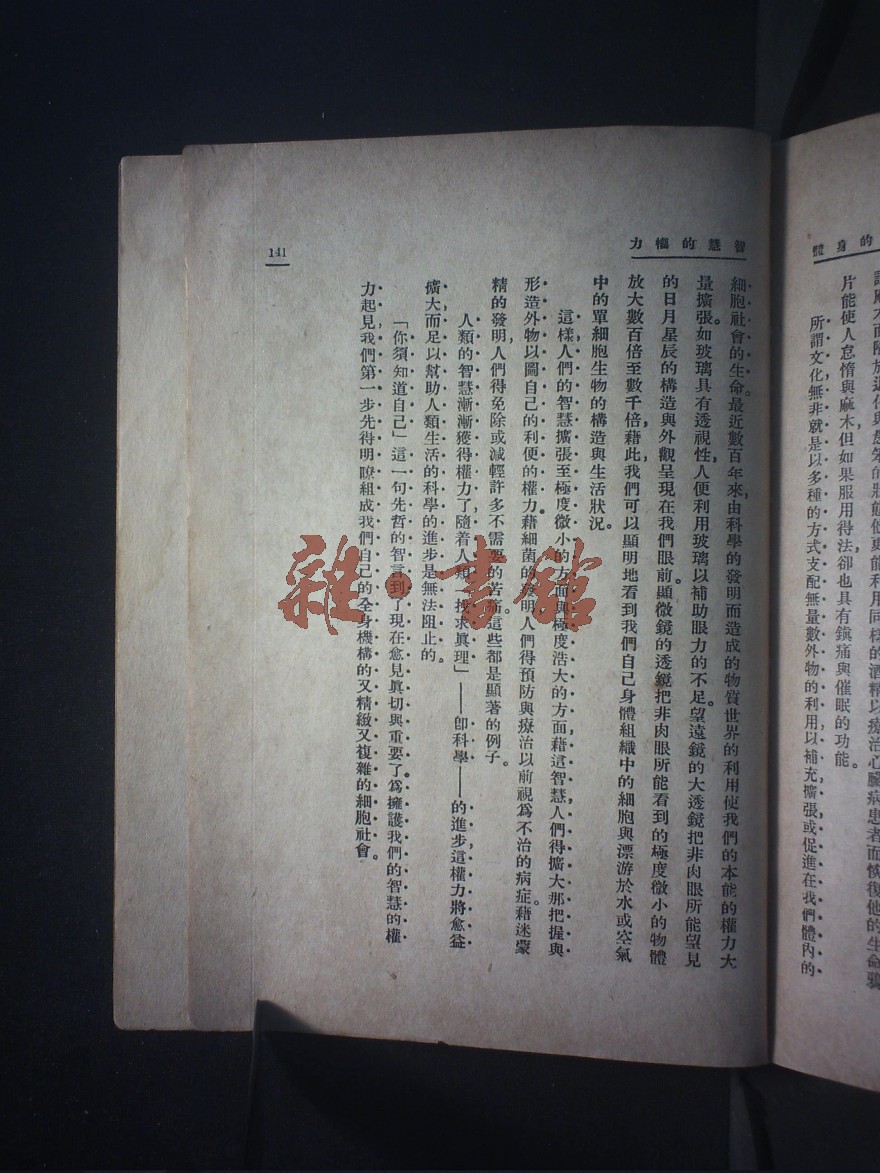 的身體
片能使人怠惰與麻木，但如果服用得法卻也具有鎭痛與催眠的功能。
所謂文化無非就是以多種的方式支配無量數外物的利用以補充擴張或促進在我們體內的
智慧的權力
細胞社會的生命。最近數百年來，由科學的發明而造成的物質世界的利用使我們的本能的權力大
量擴張。如玻璃具有透視性，人便利用玻璃以補助眼力的不足。望遠鏡的大透鏡把非肉眼所能望見
的日月星辰的構造與外觀呈現在我們眼前。顯微鏡的透鏡把非肉眼所能看到的極度微小的物體
放大數百倍至數千倍，藉此，我們可以顯明地看到我們自己身體組織中的細胞與漂游於水或空氣
中的單細胞生物的構造與生活狀況。
這樣，人們的智慧擴張至極度微小的方面與極度浩大的方面，藉這智慧，人們得擴大那把握與
形造外物以圖自己的利便的權力。藉細菌的發明人們得預防與療治以前視爲不治的病症。藉迷蒙
精的發明，人們得免除或減輕許多不需要的苦痛。這些都是顯著的例子。
人類的智慧漸漸獲得權力了，隨着人類「搜求眞理」——卽科學——的進步，這權力將愈益
擴大，而足以幫助人類生活的科學的進步是無法阻止的。
「你須知道自己」這一句先哲的智言到了現在愈見眞切與重要了。爲擁護我們的智慧的權
力起見，我們第一步先得明瞭組成我們自己的全身機構的又精緻又複雜的細胞社會。
141
雜·書館